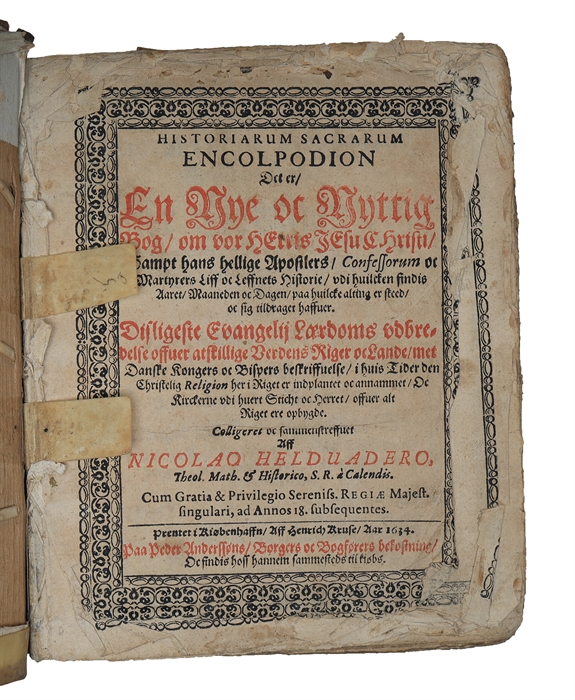 HISTORIARUM SACRARUM
ENCOLPODION
Det er/
En Nye oc Nyttig
Bog/ om vor HErris JEsu Christi/
Sampt hans hellige Apostlers/ Confessorum oc
Martyrers Liff oc Leffnets Historie/ vdi huilcken findis
Aaret/ Maaneden oc Dagen/ paa huilcke alting er steed/
oc sig tildraget haffuer.
Disligeste Evangelij Lærdoms vdbre-
delse offuer atskillige Verdens Riger oc Lande/ met
Danske Kongers oc Bispers beskriffuelse/ i huis Tider den
Christelig Religion her i Riget er indplantet oc annammet/ Oc
Kirckerne vdi huert Sticht oc Herret/ offuer alt
Riget ere opbygde.
Colligeret oc sammenstreffuet
Aff
NICOLAO HELDUADERO,
Theol. Math. & Historico, S. R. à Calendis.
Cum Gratia & Privilegio Sereniss. REGIÆ Majest.
singulari, ad Annos 18. subsequentes.
Prentet i Kiøbenhaffn/ Aff Henrich Kruse/ Aar 1634.
Paa Peder Anderssøns/ Borgers oc Bogførers bekostning/
Oc findis hoss hannem sammesteds til kiøbs.